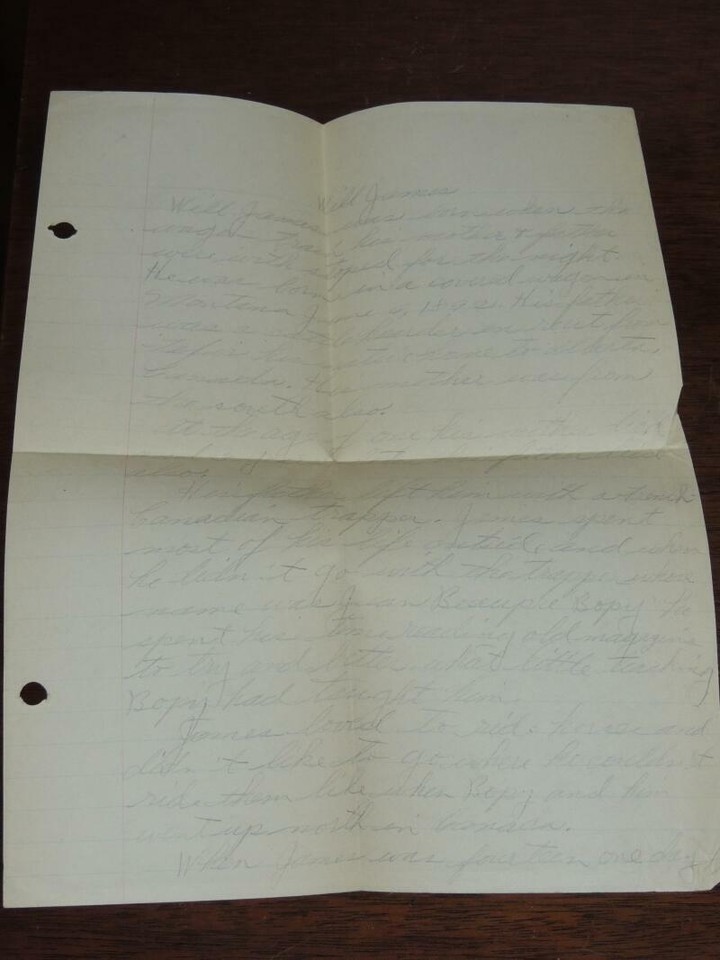 Will James
Will James was born when the
wagon train his mother & father
were with stoped for the night.
He was born in a covered wagon in
Montana June 6, 1892. His father
was a cattle
his home to Alberta,
Canada. His mother was from
the south also.
At the age of one his mother died
His father left him with a trench
Canadian trapper. James spent
most of his life outside and when
he didn't go with the trapper whose
name was Jean Beaupre Bopy he
spent his time reading old magazine
to try and better what little teaching
Bopy had taught him.
James loved to ride horses and
didn't like to go where he couldn't
ride them like when Bopy and him
went up north in Canada.
When James was fourteen one day